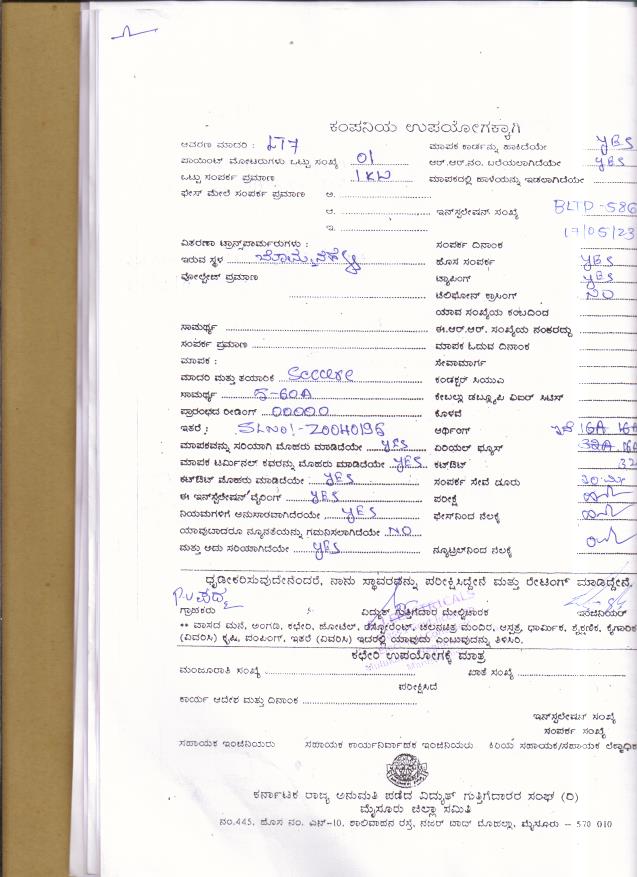 ಕಂಪನಿಯ ಉಪಯೋಗಕ್ಕಾಗಿ
ಆವರಣ ಮಾದರಿ : LT7 ಮಾಪಕ ಕಾರ್ಡನ್ನು ಹಾಕಿದೆಯೇ YES
ಪಾಯಿಂಟ್ ಮೋಟರುಗಳು ಒಟ್ಟು ಸಂಖ್ಯೆ 01 ಆರ್.ಆರ್.ನಂ. ಬರೆಯಲಾಗಿದೆಯೇ YES
ಒಟ್ಟು ಸಂಪರ್ಕ ಪ್ರಮಾಣ 1KW ಮಾಪಕದಲ್ಲಿ ಹಾಳೆಯನ್ನು ಇಡಲಾಗಿದೆಯೇ
ಫೇಸ್ ಮೇಲೆ ಸಂಪರ್ಕ ಪ್ರಮಾಣ ಅ.
ಆ. ಇನ್‌ಸ್ಟಲೇಷನ್ ಸಂಖ್ಯೆ BLTP-586
ಇ. 17/05/23
ವಿತರಣಾ ಟ್ರಾನ್ಸ್‌ಫಾರ್ಮರುಗಳು : ಸಂಪರ್ಕ ದಿನಾಂಕ
ಇರುವ ಸ್ಥಳ ಹೊಸ ಸಂಪರ್ಕ YES
ವೋಲ್ಟೇಜ್ ಪ್ರಮಾಣ ಟ್ಯಾಪಿಂಗ್ YES
ಟೆಲಿಫೋನ್ ಕ್ರಾಸಿಂಗ್ NO
ಯಾವ ಸಂಖ್ಯೆಯ ಕಂಬದಿಂದ
ಸಾಮರ್ಥ್ಯ ಈ.ಆರ್.ಆರ್. ಸಂಖ್ಯೆಯ ನಂತರದ್ದು
ಸಂಪರ್ಕ ಪ್ರಮಾಣ ಮಾಪಕ ಓದುವ ದಿನಾಂಕ
ಮಾಪಕ : ಸೇವಾಮಾರ್ಗ
ಮಾದರಿ ಮತ್ತು ತಯಾರಿಕೆ Seccere ಕಂಡಕ್ಟರ್ ಸಿಯುವಿ
ಸಾಮರ್ಥ್ಯ 5-60A ಕೇಬಲ್ಲು ಡಬ್ಲ್ಯೂಪಿ ವಿಐರ್ ಸಿಟಿಸ್
ಪ್ರಾರಂಭದ ರೀಡಿಂಗ್ 00000 ಕೊಳವೆ
ಇತರೆ : SLNO!-Z0040196 ಆರ್ಥಿಂಗ್ 16A 16A
ಮಾಪಕವನ್ನು ಸರಿಯಾಗಿ ಮೊಹರು ಮಾಡಿದೆಯೇ YES ಏರಿಯಲ್ ಫ್ಯೂಸ್ 32A 16A
ಮಾಪಕ ಟರ್ಮಿನಲ್ ಕವರನ್ನು ಮೊಹರು ಮಾಡಿದೆಯೇ YES ಕಟ್‌ಔಟ್ 32
ಕಟ್‌ಔಟ್ ಮೊಹರು ಮಾಡಿದೆಯೇ YES ಸಂಪರ್ಕ ಸೇವೆ ದೂರು 20 ಮೀ
ಈ ಇನ್‌ಸ್ಟಲೇಷನ್ ವೈರಿಂಗ್ YES ಪರೀಕ್ಷೆ
ನಿಯಮಗಳಿಗೆ ಅನುಸಾರವಾಗಿದೆರೆಯೇ YES ಫೇಸ್‌ನಿಂದ ನೆಲಕ್ಕೆ
ಯಾವುದಾದರೂ ನ್ಯೂನತೆಯನ್ನು ಗಮನಿಸಲಾಗಿದೆಯೇ NO
ಮತ್ತು ಅದು ಸರಿಯಾಗಿದೆಯೇ YES ನ್ಯೂಟ್ರಲ್‌ನಿಂದ ನೆಲಕ್ಕೆ
ಧೃಡೀಕರಿಸುವುದೇನೆಂದರೆ, ನಾನು ಸ್ಥಾವರವನ್ನು ಪರೀಕ್ಷಿಸಿದ್ದೇನೆ ಮತ್ತು ರೇಟಿಂಗ್ ಮಾಡಿದ್ದೇನೆ.
ಗ್ರಾಹಕರು ವಿದ್ಯುತ್ ಗುತ್ತಿಗೆದಾರ ಮೇಲ್ವಿಚಾರಕ ಇಂಜಿನಿಯರ್
** ವಾಸದ ಮನೆ, ಅಂಗಡಿ, ಕಛೇರಿ, ಹೋಟೆಲ್, ರೆಸ್ಟೋರೆಂಟ್, ಚಲನಚಿತ್ರ ಮಂದಿರ, ಆಸ್ಪತ್ರೆ, ಧಾರ್ಮಿಕ, ಶೈಕ್ಷಣಿಕ, ಕೈಗಾರಿಕ
(ವಿವರಿಸಿ) ಕೃಷಿ, ಪಂಪಿಂಗ್, ಇತರೆ (ವಿವರಿಸಿ) ಇದರಲ್ಲಿ ಯಾವುದು ಎಂಬುವುದನ್ನು ತಿಳಿಸಿರಿ.
ಕಛೇರಿ ಉಪಯೋಗಕ್ಕೆ ಮಾತ್ರ
ಮಂಜೂರಾತಿ ಸಂಖ್ಯೆ ಖಾತೆ ಸಂಖ್ಯೆ
ಪರೀಕ್ಷಿಸಿದೆ
ಕಾರ್ಯ ಆದೇಶ ಮತ್ತು ದಿನಾಂಕ
ಇನ್‌ಸ್ಟಲೇಷನ್ ಸಂಖ್ಯೆ
ಸಂಪರ್ಕ ಸಂಖ್ಯೆ
ಸಹಾಯಕ ಇಂಜಿನಿಯರು ಸಹಾಯಕ ಕಾರ್ಯನಿರ್ವಾಹಕ ಇಂಜಿನಿಯರು ಕಿರಿಯ ಸಹಾಯಕ/ಸಹಾಯಕ ಲೆಕ್ಕಾಧಿಕ
ಕರ್ನಾಟಕ ರಾಜ್ಯ ಅನುಮತಿ ಪಡೆದ ವಿದ್ಯುತ್ ಗುತ್ತಿಗೆದಾರರ ಸಂಘ (ರಿ)
ಮೈಸೂರು ಜಿಲ್ಲಾ ಸಮಿತಿ
ನಂ.445, ಹೊಸ ನಂ. ಎನ್-10, ಶಾಲಿವಾಹನ ರಸ್ತೆ, ನಜರ್ ಬಾದ್ ಮೊಹಲ್ಲಾ, ಮೈಸೂರು – 570 010